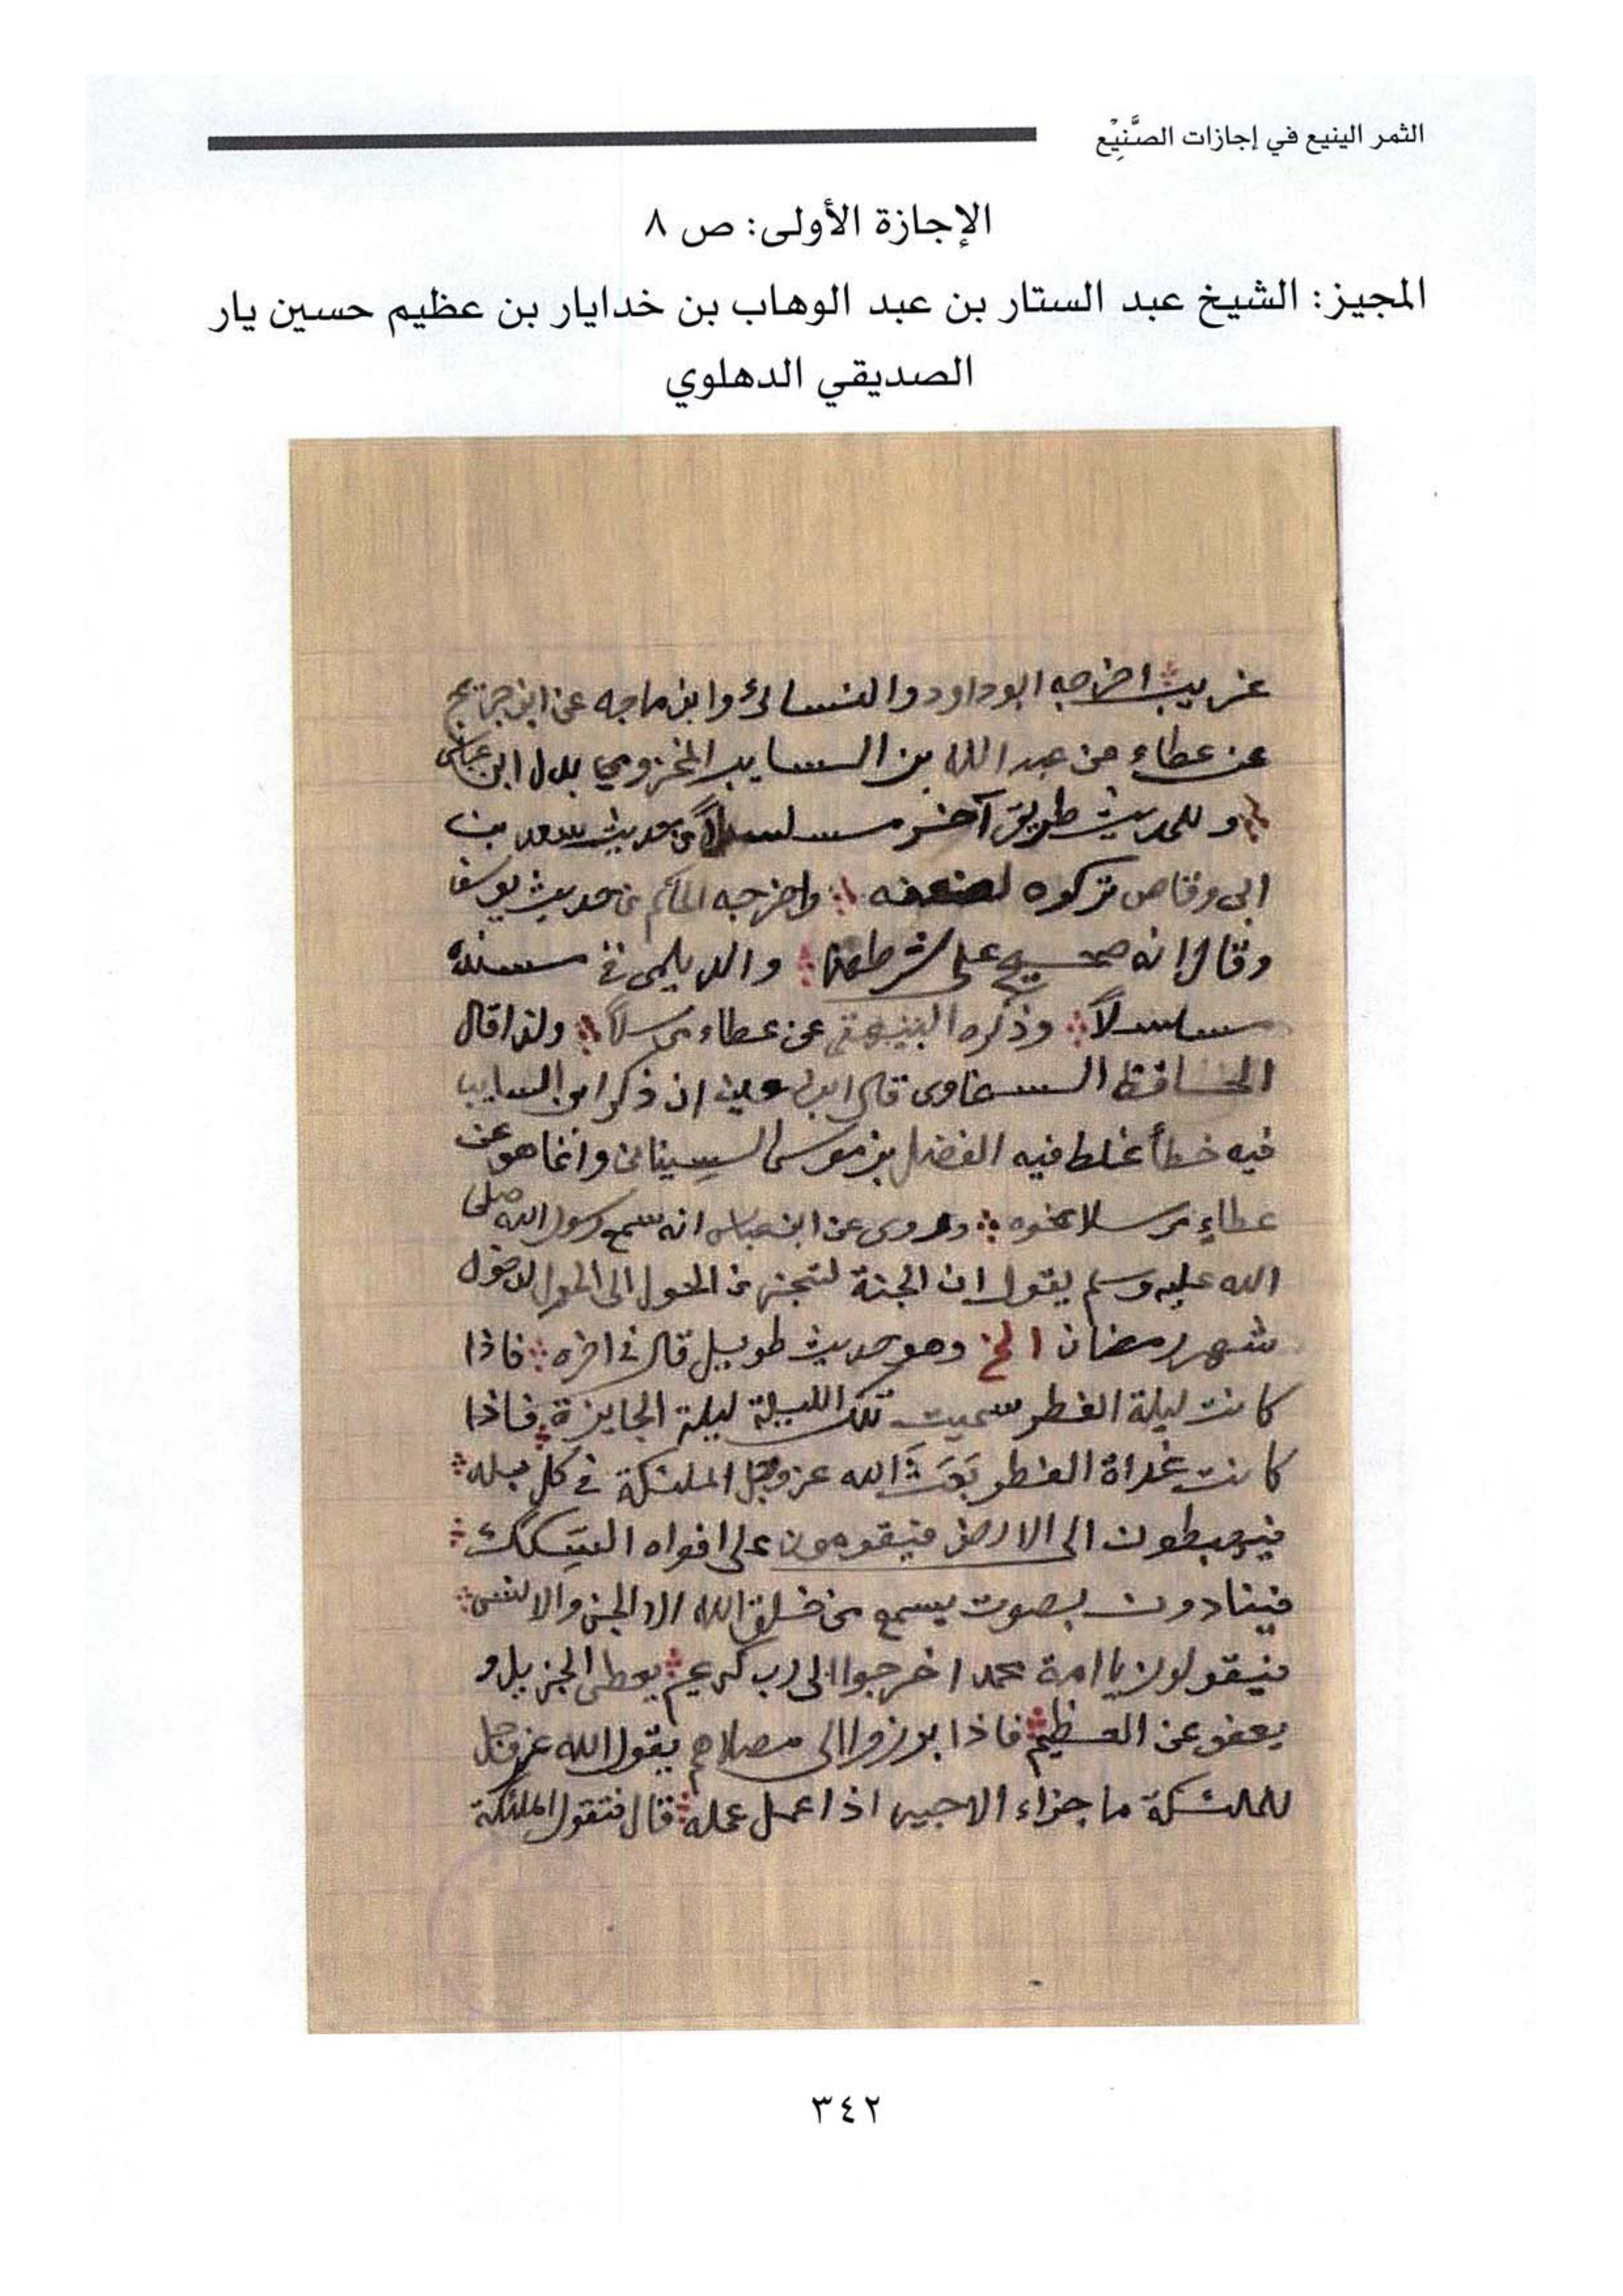 الثمر الينيع في إجازات الصَّنِيْع
الإجازة الأولى: ص ٨
المجيز: الشيخ عبد الستار بن عبد الوهاب بن خدايار بن عظيم حسين يار
الصديقي الدهلوي
غريب اخرجه ابو داود والنسائ وابن ماجه عن ابن جريج
عن عطاء عن عبد الله بن السايب المخزومي بدل ابن عباس
وللحديث طريق آخر مسلسلاً من حديث سعد بن
ابى وقاص تركوه لضعفه واخرجه الحاكم من حديث يوسف
وقال انه صحيح على شرطهما والديلمى فى مسنده
مسلسلاً وذكره البيهقى عن عطاء مرسلاً ولذا قال
الحافظ السخاوى قال ابن معين ان ذكر ابن السايب
فيه خطأ غلط فيه الفضل بن موسى السِينانى وانما هو عن
عطاءٍ مرسلا بنحوه وروى عن ابن عباس انه سمع رسول الله صلى
الله عليه وسلم يقول ان الجنة لتنجد من الحول الى الحول لدخول
شهر رمضان الخ وهو حديث طويل قال فى اخره فاذا
كانت ليلة الفطر سميت تلك الليلة ليلة الجايزة فاذا
كانت غداة الفطر بَعَثَ الله عز وجل الملئكة فى كل بلد
فيهبطون الى الارض فيقومون على افواه السِكك
فينادون بصوت يسمع من خلق الله الا الجن والانس
فيقولون يا امة محمد اخرجوا الى رب كريم يعطى الجزيل و
يعفو عن العظيم فاذا برزوا الى مصلاهم يقول الله عز وجل
للملئكة ما جزاء الاجير اذا عمل عمله قال فتقول الملئكة
٣٤٢